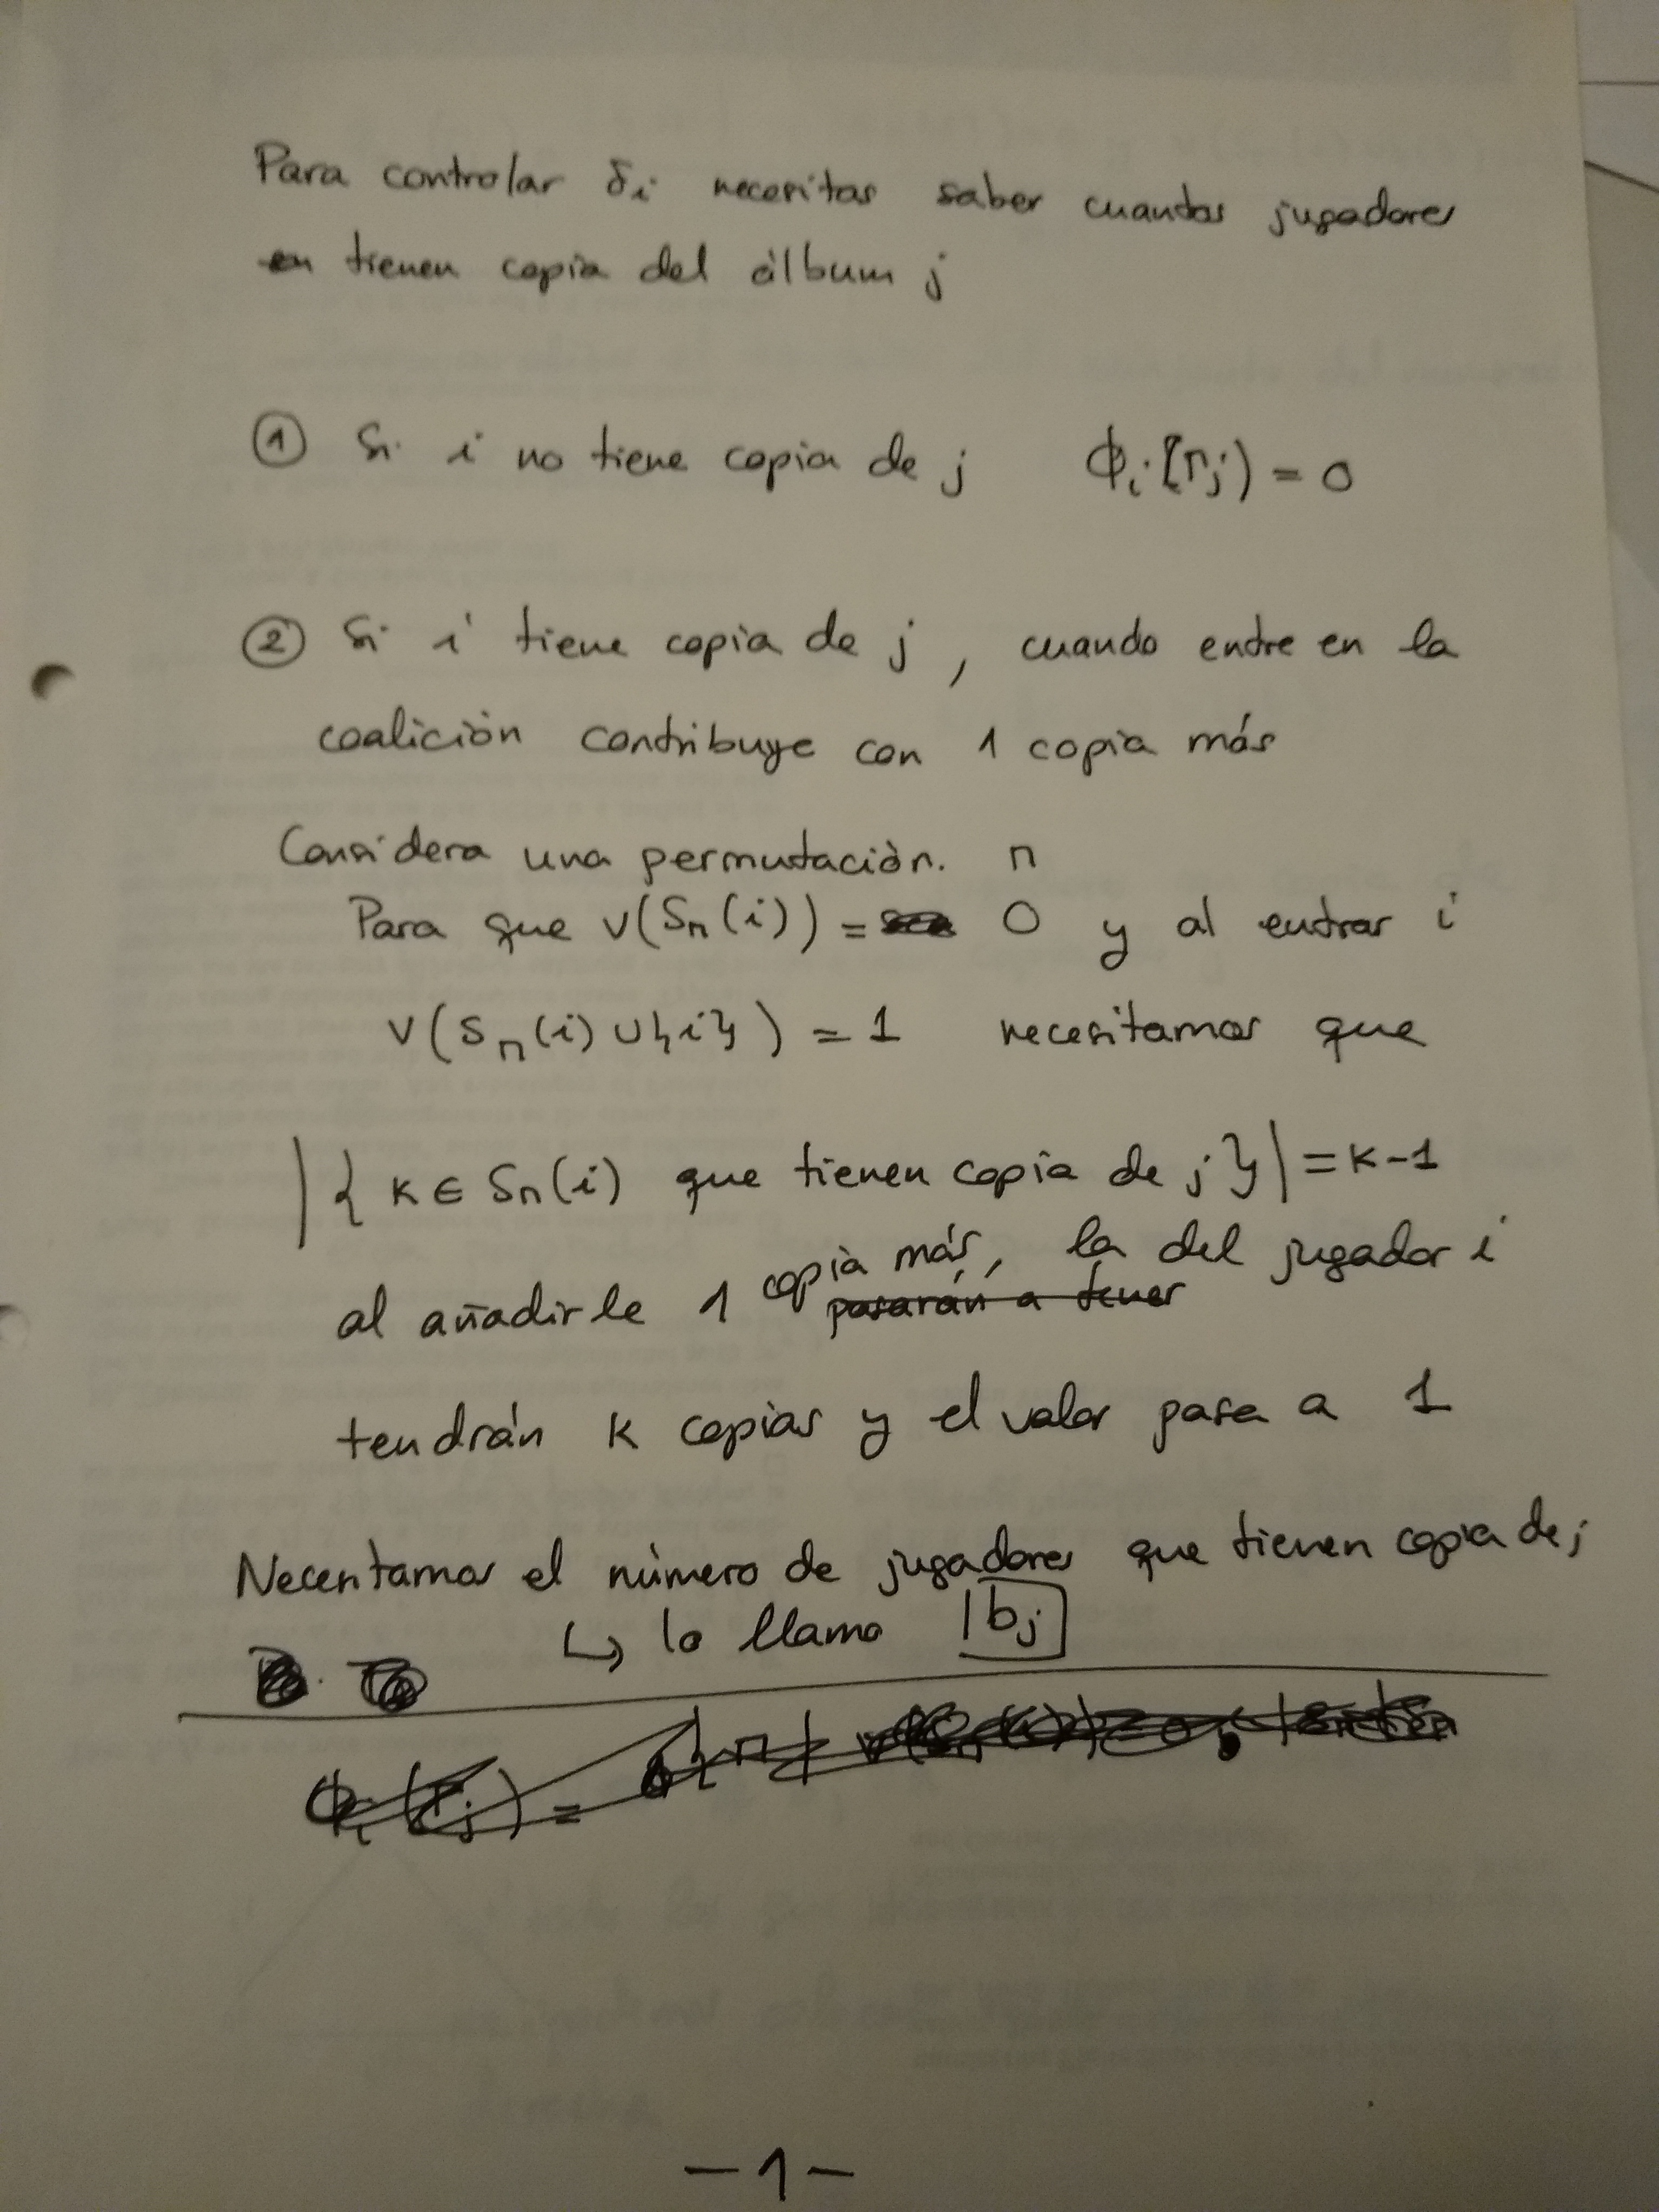 Para controlar δi necesitas saber cuantos jugadores
en tienen copia del álbum j
① Si i no tiene copia de j Φi(Γj) = 0
② Si i tiene copia de j, cuando entre en la
coalición contribuye con 1 copia más
Considera una permutación. π
Para que v(Sπ(i)) = 0 y al entrar i
v(Sπ(i) ∪ {i}) = 1 necesitamos que
|{ k ∈ Sπ(i) que tienen copia de j }| = k-1
al añadirle 1 copia más, la del jugador i
pasarán a tener
tendrán k copias y el valor pasa a 1
Necesitamos el número de jugadores que tienen copia de j
↳ lo llamo |bj|
Φi(Γj) =
-1-